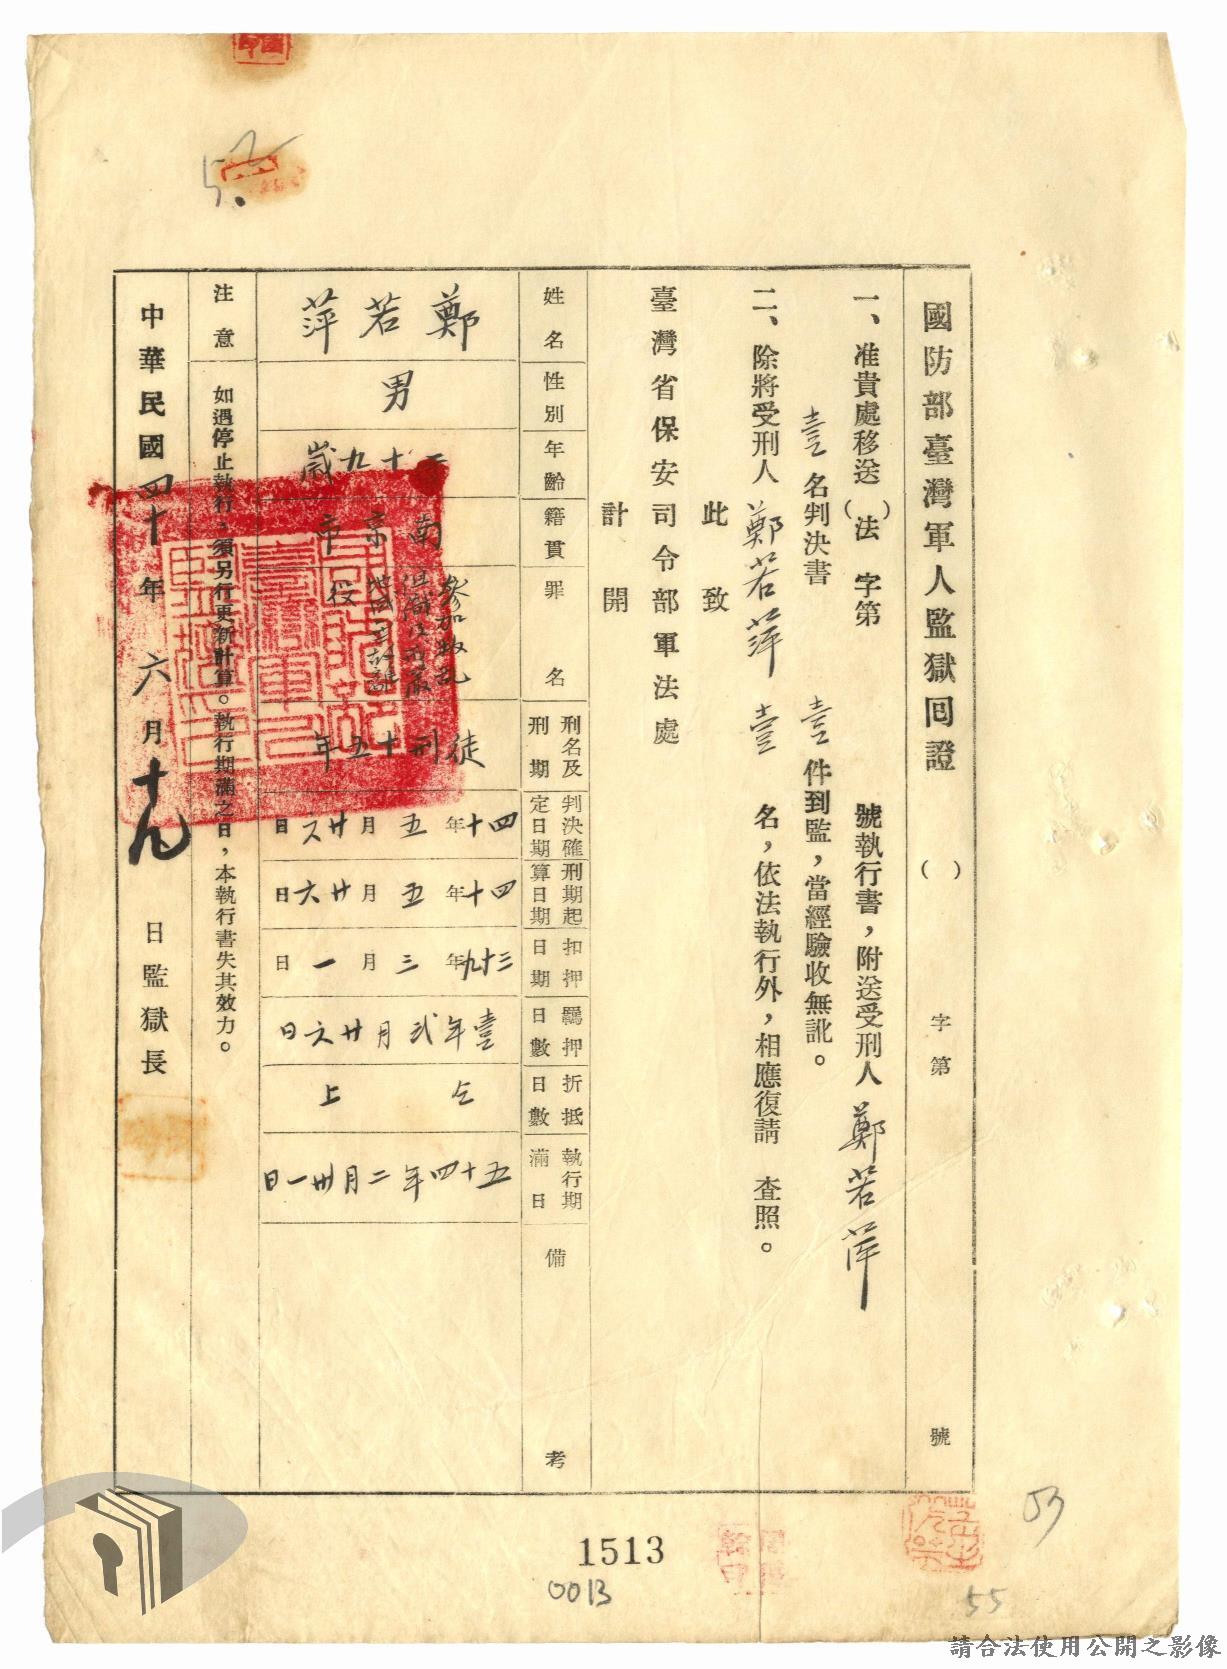 國防部臺灣軍人監獄回證 ( ) 字第 號
一、准貴處移送( )法字第 號執行書，附送受刑人鄭若萍
壹名判決書 壹件到監，當經驗收無訛。
二、除將受刑人鄭若萍 壹 名，依法執行外，相應復請 查照。
此致
臺灣省保安司令部軍法處
計開
姓名 鄭若萍
性別 男
年齡 十九歲
籍貫 南京市
罪名 參加叛亂組織
刑名及刑期 徒刑十五年
判決確定日期 四十年五月廿六日
刑期起算日期 四十年五月廿六日
扣押日期 三十九年三月一日
羈押日數 壹年貳月廿六日
折抵日數 仝上
執行期滿日 五十四年二月卅一日
備考
注意 如遇停止執行，須另行更新計算。執行期滿之日，本執行書失其效力。
中華民國四十年六月十九日監獄長
52
1513
0013
53
55
請合法使用公開之影像